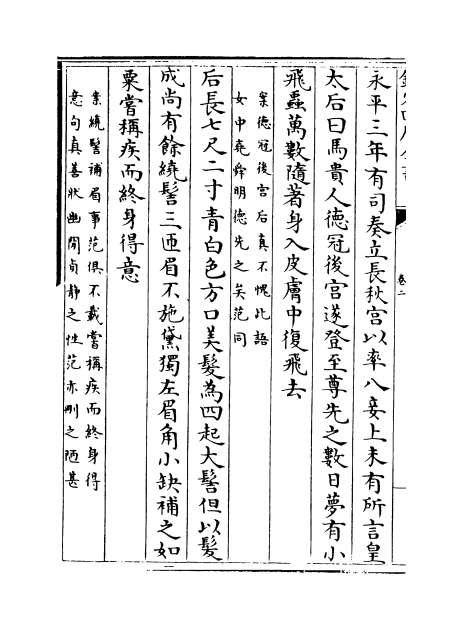 永平三年有司奏立長秋宮以率八妾上未有所言皇
太后曰馬貴人德冠後宮遂登至尊先之數日夢有小
飛蟲萬數隨著身入皮膚中復飛去
案德冠後宮后真不愧此語
女中堯舜明德先之矣范同
后長七尺二寸青白色方口美髮為四起大髻但以髮
成尚有餘繞髻三匝眉不施黛獨左眉角小缺補之如
粟嘗稱疾而終身得意
案繞髻補眉事范俱不載嘗稱疾而終身得
意句真善狀幽閒貞静之性范亦刪之陋甚
卷二